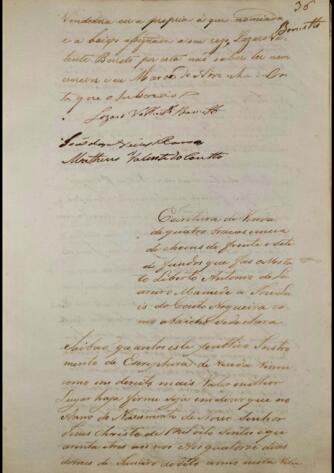 36
Barretto
Vendedora era a propria a que nomeada
e a baixo assignada a seu rogo Lazaro Va
lente Barreto por esta não saber ler nem
escrever eu Marcos de Noronha da Cos
ta que o subscrevi
Lazaro Valente Barretto
João da
Matheus Valente do Couto
Escritura de Venda
de quatro bracas e meia
de chaons de frente e sete
de fundos que fas o Mosta
Liberto Antonio de
Mamede a
do Couto Nogueira co
mo abaicho se declara
Saibão quantos este publico Instru
mento de Escriptura de Venda Virem
em direito mais Valido melhor
Lugar haja forme Seja em dizer que no
Anno do Nascimento de Nosso Senhor
Jesus Christo de mil oito Sentos e qua
renta aos quatorze dias
do mes de Janeiro do dito anno nesta Villa